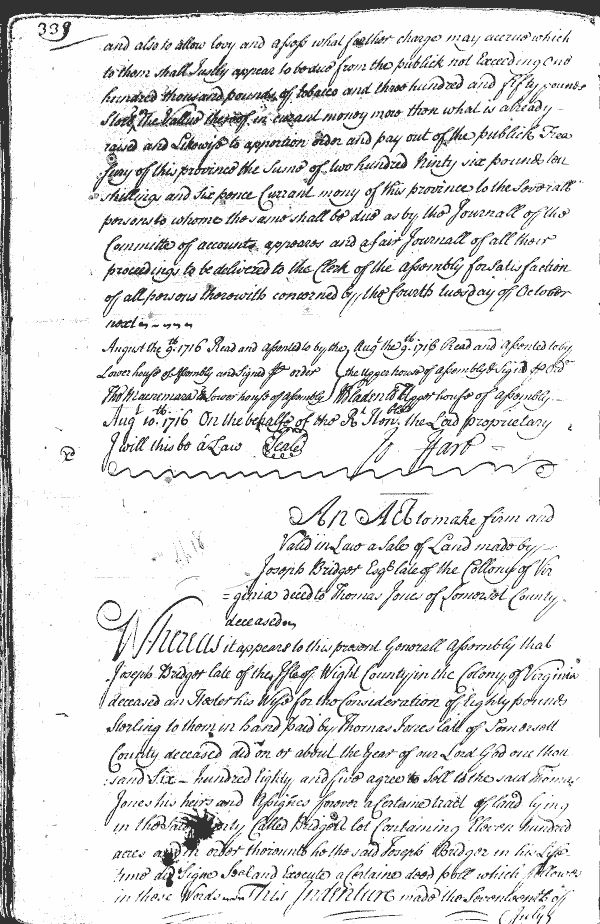 339
and also to allow levy and assess what further charge may accrue which
to them shall Justly appear to be due from the publick not Exceeding One
hundred thousand pounds of tobacco and three hundred and fifty pounds
Sterl. The Vallue thereof in curant money more then what is already
raised and Likewise to apportion order and pay out of the publick Trea
sury of this province the Sume of two hundred Ninty six pounds ten
shillings and six pence Currant mony of this province to the Severall
persons to whome the same shall be due as by the Journall of the
Committe of accounts appeares and a fair Journall of all their
proceedings to be delivered to the Clerk of the Assembly for Satisfaction
of all persons therewith concerned by the fourth tuesday of October
next
August the 9th. 1716 Read and assented to by the
Lower house of Assembly and Signd p order
Tho Macnemara Cl Lower house of assembly
Aug the 9th. 1716 Read and assented to by
the upper house of assembly & Signd p Ord
W Bladen Cl Upper house of assembly
Augt 10th. 1716 On the behalfe of the Rt Honble the Lord proprietary
I will this be a Law
Seale
Jo Hart
An Act to make firm and
Valid in Law a Sale of Land made by
Joseph Bridger Esqr late of the Collony of Vir
=ginia deced to Thomas Jones of Somerset County
deceased
Whereas it appears to this present Generall Assembly that
Joseph Bridger late of the Isle of Wight County in the Colony of Virginia
deceased an Hester his Wife for the Consideration of Eighty pounds
Sterling to them in hand paid by Thomas Jones late of Somersett
County deceased did on or about the Year of our Lord God one thou
sand Six hundred Eighty and five agree to Sell to the said Thomas
Jones his heirs and Assignes forever a certaine tract of land lying
in the County Called Bridgers lot Containing Eleven hundred
acres and in order thereunto he the said Joseph Bridger in his Life
time did Signe Seal and Execute a certaine deed poll which followes
in these Words This Indenture made the Seventeenth of
July